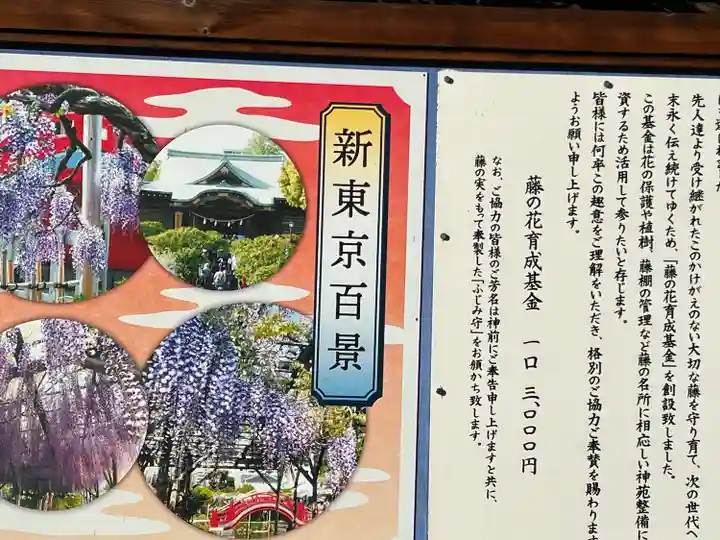 先人達より受け継がれたこのかけがえのない大切な藤を守り育て、次の世代へ
末永く伝え続けてゆくため、「藤の花育成基金」を創設致しました。
この基金は花の保護や植樹、藤棚の管理など藤の名所に相応しい神苑整備に
資するため活用して参りたいと存じます。
皆様には何卒この趣意をご理解をいただき、格別のご協力ご奉賛を賜わります
ようお願い申し上げます。
藤の花育成基金 一口 三、〇〇〇円
なお、ご協力の皆様のご芳名は神前にご奉告申し上げますと共に、
藤の実をもって奉製した「ふじみ守」をお頒かち致します。
新東京百景